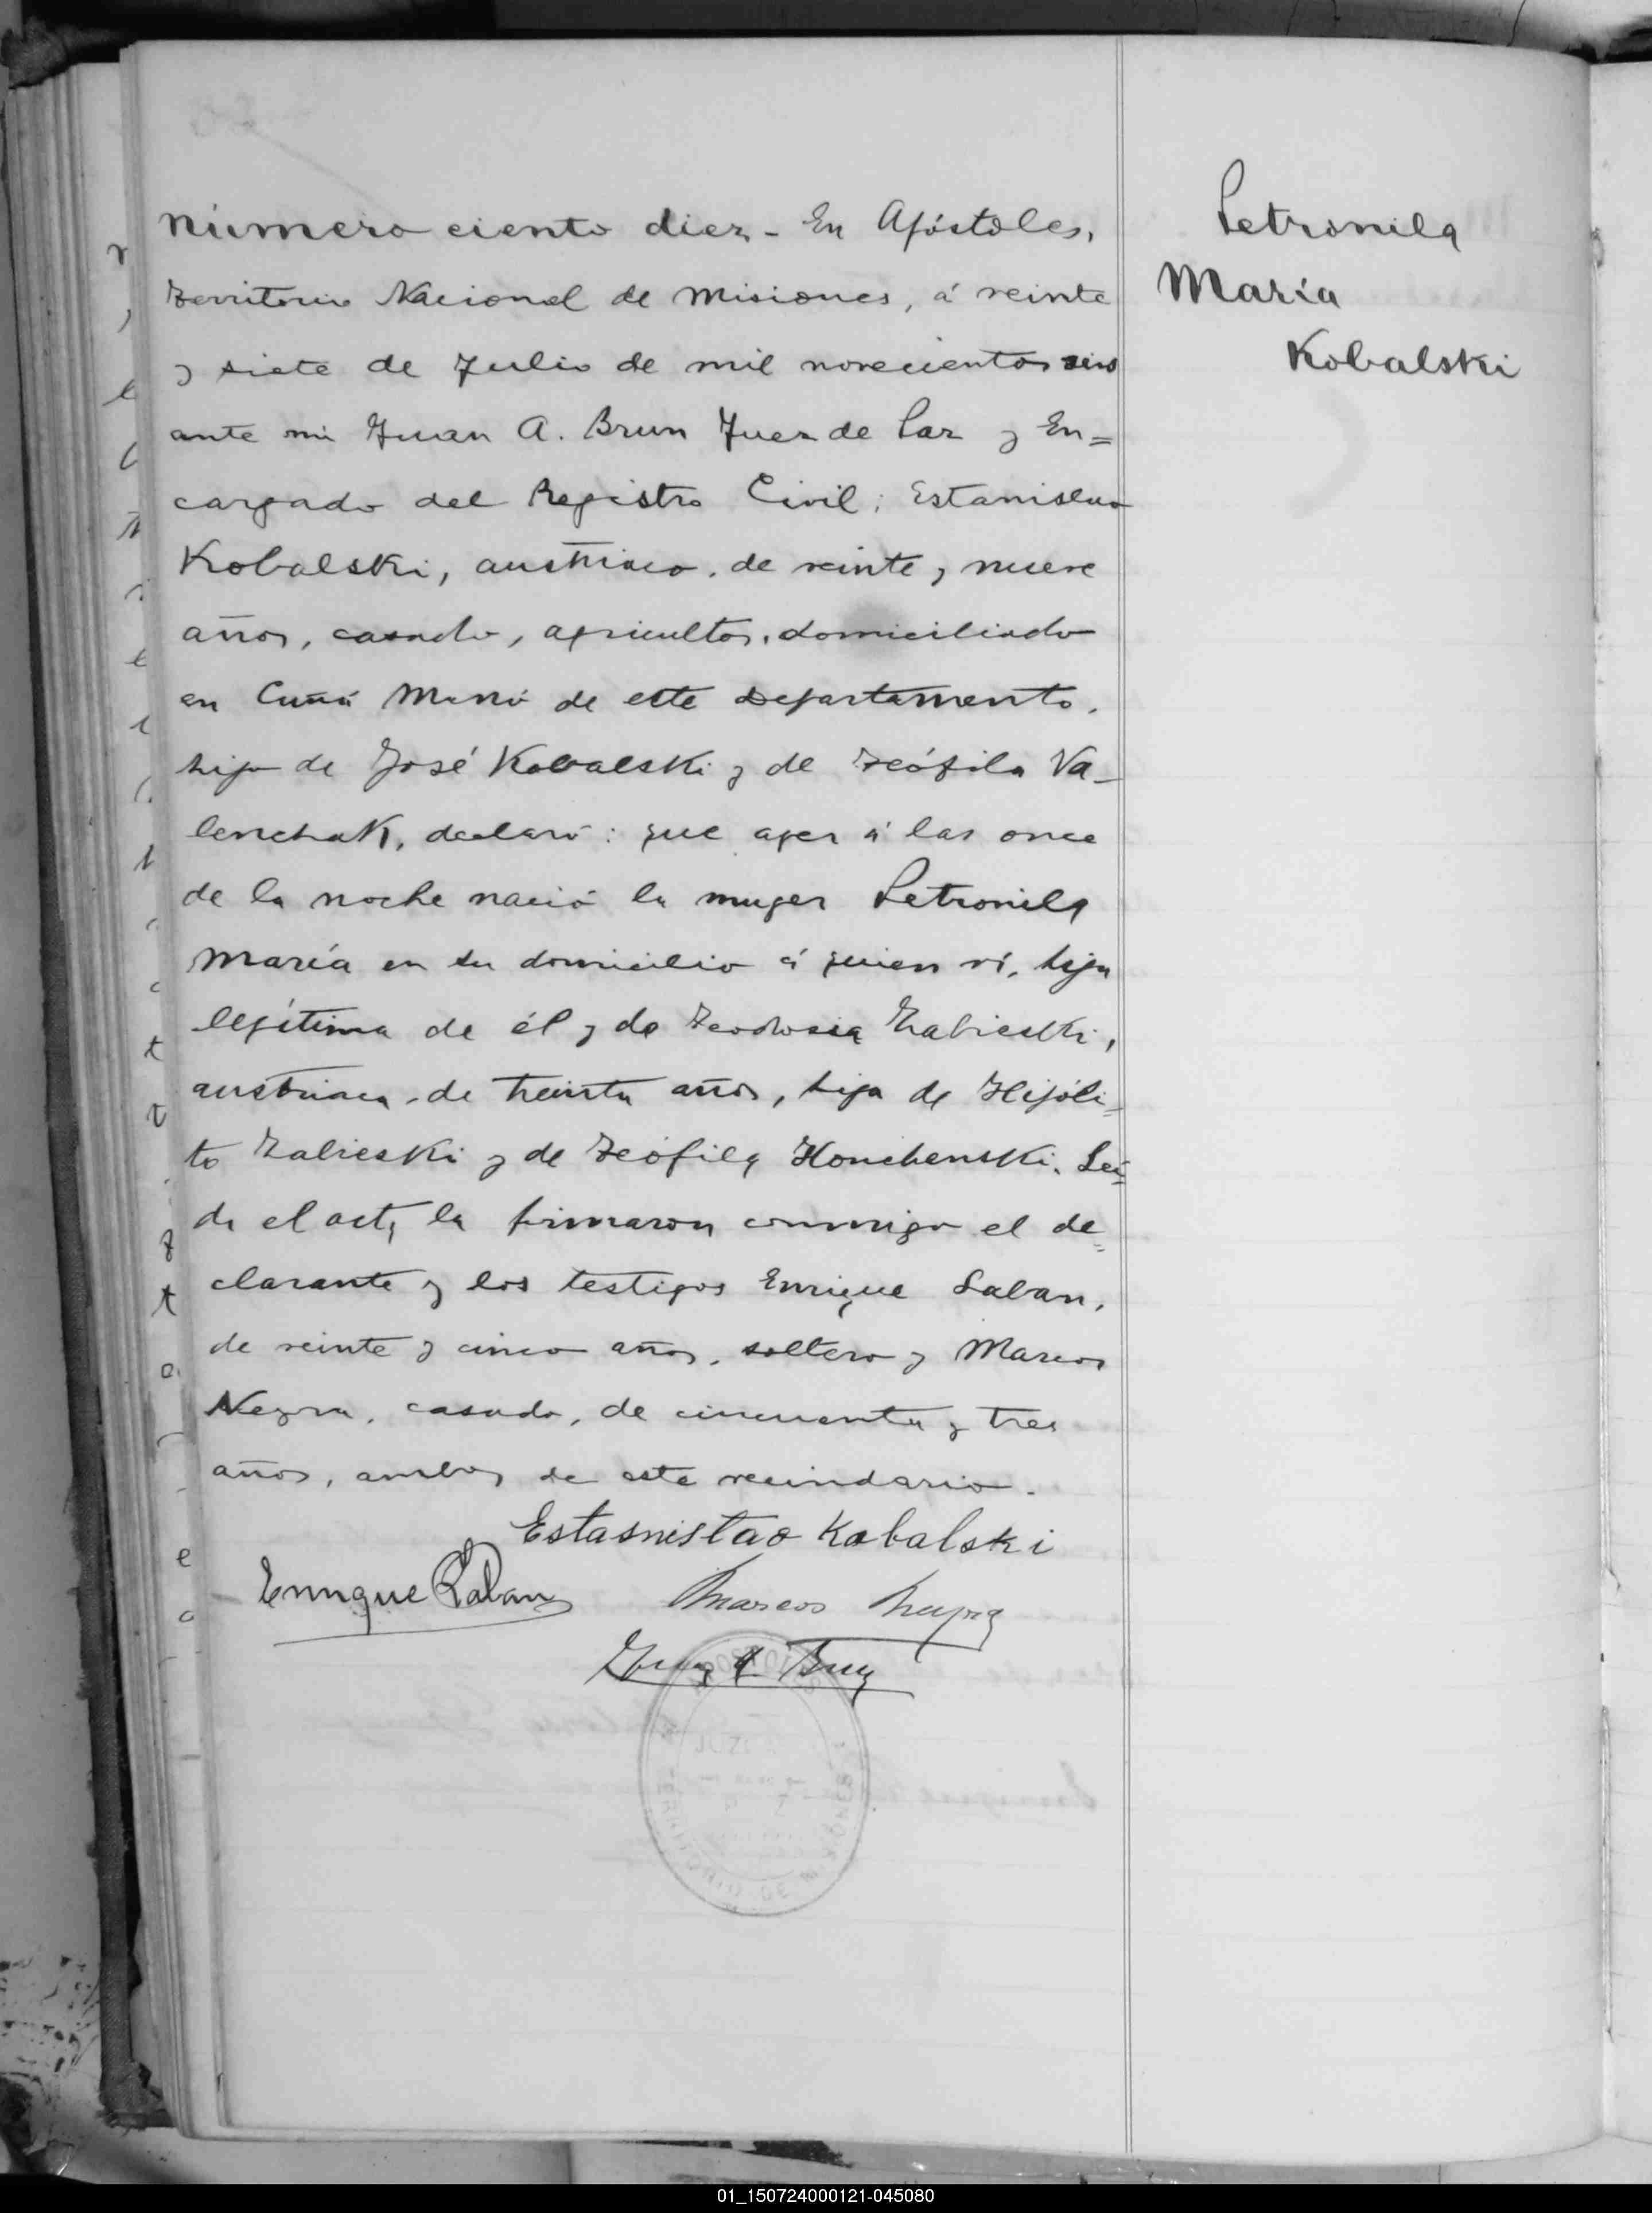 Número ciento diez - En Apóstoles,
Territorio Nacional de Misiones, á veinte
y siete de Julio de mil novecientos seis
ante mi Juan A. Brun Juez de Paz y En=
cargado del Registro Civil; Estanislao
Kobalski, austriaco, de veinte y nueve
años, casado, agricultor, domiciliado
en Cuñá Manó de este Departamento,
hijo de José Kobalski y de Teófila Va-
lenchak, declaró: que ayer á las once
de la noche nació la muger Petronila
María en su domicilio á quien ví, hija
legítima de él y de Teodosia Zabieski,
austriaca, de treinta años, hija de Hipóli=
to Zabieski y de Teófila Honchenski. Leí=
da el acta la firmaron conmigo el de=
clarante y los testigos Enrique Laban,
de veinte y cinco años, soltero y Marcos
Neyra, casado, de cincuenta y tres
años, ambos de este vecindario.
Estasnistao Kobalski
Enrique Laban Marcos Neyra
Juan A Brun
Petronila
María
Kobalski
JUZG
TERRITORIO DE
01_150724000121-045080